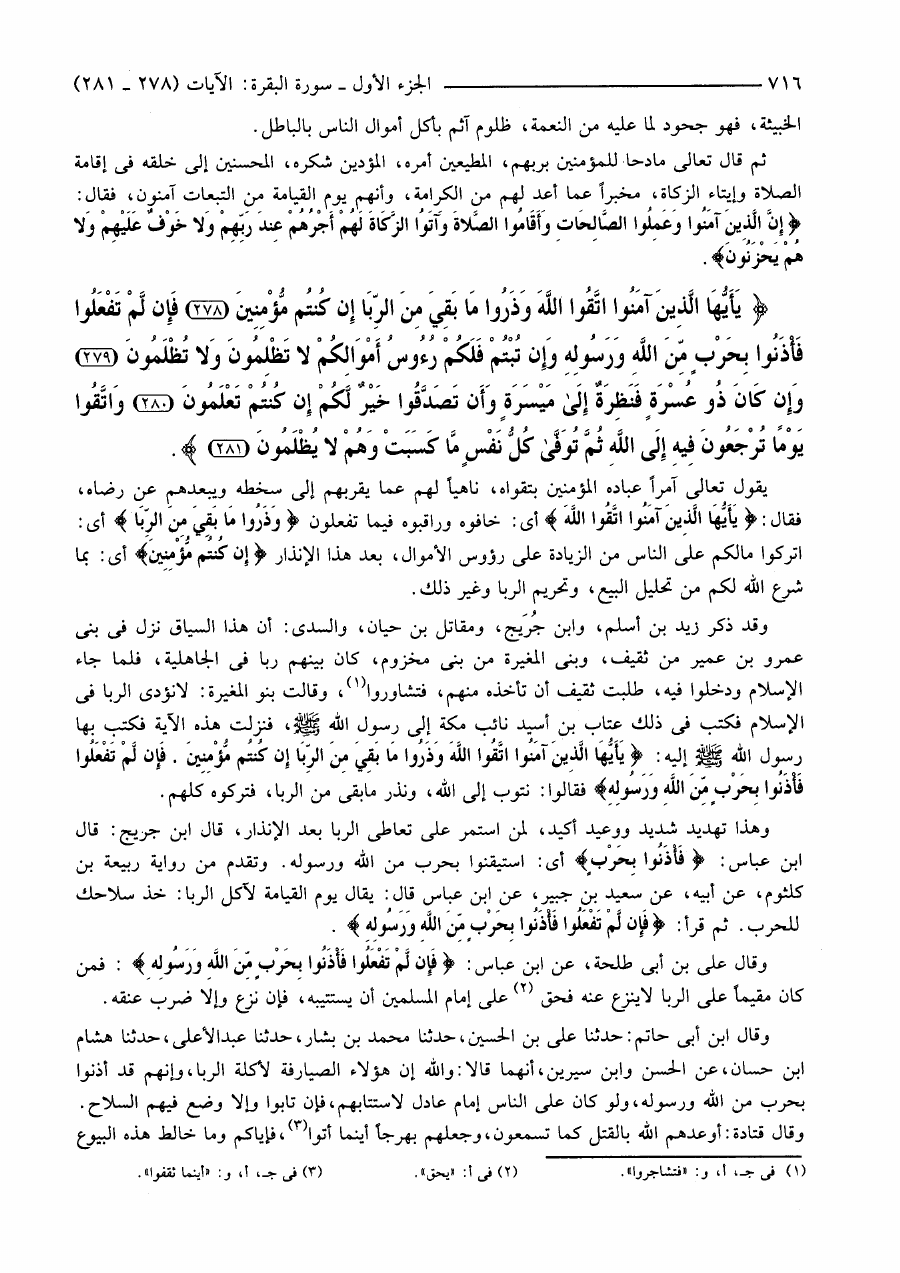 ٧١٦ ــــــــــــــــــــــــــــــــ الجزء الأول ـ سورة البقرة: الآيات (٢٧٨ ـ ٢٨١)
الخبيثة، فهو جحود لما عليه من النعمة، ظلوم آثم بأكل أموال الناس بالباطل.
ثم قال تعالى مادحا للمؤمنين بربهم، المطيعين أمره، المؤدين شكره، المحسنين إلى خلقه فى إقامة
الصلاة وإيتاء الزكاة، مخبراً عما أعد لهم من الكرامة، وأنهم يوم القيامة من التبعات آمنون، فقال:
﴿ إِنَّ الَّذِينَ آمَنُوا وَعَمِلُوا الصَّالِحَاتِ وَأَقَامُوا الصَّلاةَ وَآتَوُا الزَّكَاةَ لَهُمْ أَجْرُهُمْ عِندَ رَبِّهِمْ وَلا خَوْفٌ عَلَيْهِمْ وَلا
هُمْ يَحْزَنُونَ﴾.
﴿ يَأَيُّهَا الَّذِينَ آمَنُوا اتَّقُوا اللَّهَ وَذَرُوا مَا بَقِيَ مِنَ الرِّبَا إِن كُنتُم مُّؤْمِنِينَ (٢٧٨) فَإِن لَّمْ تَفْعَلُوا
فَأْذَنُوا بِحَرْبٍ مِّنَ اللَّهِ وَرَسُولِهِ وَإِن تُبْتُمْ فَلَكُمْ رُءُوسُ أَمْوَالِكُمْ لا تَظْلِمُونَ وَلا تُظْلَمُونَ (٢٧٩)
وَإِن كَانَ ذُو عُسْرَةٍ فَنَظِرَةٌ إِلَىٰ مَيْسَرَةٍ وَأَن تَصَدَّقُوا خَيْرٌ لَّكُمْ إِن كُنتُمْ تَعْلَمُونَ (٢٨٠) وَاتَّقُوا
يَوْمًا تُرْجَعُونَ فِيهِ إِلَى اللَّهِ ثُمَّ تُوَفَّىٰ كُلُّ نَفْسٍ مَّا كَسَبَتْ وَهُمْ لا يُظْلَمُونَ (٢٨١) ﴾.
يقول تعالى آمراً عباده المؤمنين بتقواه، ناهياً لهم عما يقربهم إلى سخطه ويبعدهم عن رضاه،
فقال:﴿ يَأَيُّهَا الَّذِينَ آمَنُوا اتَّقُوا اللَّهَ ﴾ أى: خافوه وراقبوه فيما تفعلون ﴿ وَذَرُوا مَا بَقِيَ مِنَ الرِّبَا ﴾ أى:
اتركوا مالكم على الناس من الزيادة على رؤوس الأموال، بعد هذا الإنذار ﴿ إِن كُنتُم مُّؤْمِنِينَ﴾ أى: بما
شرع الله لكم من تحليل البيع، وتحريم الربا وغير ذلك.
وقد ذكر زيد بن أسلم، وابن جُرَيج، ومقاتل بن حيان، والسدى: أن هذا السياق نزل فى بنى
عمرو بن عمير من ثقيف، وبنى المغيرة من بنى مخزوم، كان بينهم ربا فى الجاهلية، فلما جاء
الإسلام ودخلوا فيه، طلبت ثقيف أن تأخذه منهم، فتشاوروا(١)، وقالت بنو المغيرة: لانؤدى الربا فى
الإسلام فكتب فى ذلك عتاب بن أسيد نائب مكة إلى رسول الله ﷺ، فنزلت هذه الآية فكتب بها
رسول الله ﷺ إليه: ﴿ يَأَيُّهَا الَّذِينَ آمَنُوا اتَّقُوا اللَّهَ وَذَرُوا مَا بَقِيَ مِنَ الرِّبَا إِن كُنتُم مُّؤْمِنِينَ . فَإِن لَّمْ تَفْعَلُوا
فَأْذَنُوا بِحَرْبٍ مِّنَ اللَّهِ وَرَسُولِهِ﴾ فقالوا: نتوب إلى الله، ونذر مابقى من الربا، فتركوه كلهم.
وهذا تهديد شديد ووعيد أكيد، لمن استمر على تعاطى الربا بعد الإنذار، قال ابن جريج: قال
ابن عباس: ﴿ فَأْذَنُوا بِحَرْبٍ﴾ أى: استيقنوا بحرب من الله ورسوله. وتقدم من رواية ربيعة بن
كلثوم، عن أبيه، عن سعيد بن جبير، عن ابن عباس قال: يقال يوم القيامة لآكل الربا: خذ سلاحك
للحرب. ثم قرأ: ﴿فَإِن لَّمْ تَفْعَلُوا فَأْذَنُوا بِحَرْبٍ مِّنَ اللَّهِ وَرَسُولِهِ ﴾ .
وقال على بن أبى طلحة، عن ابن عباس: ﴿ فَإِن لَّمْ تَفْعَلُوا فَأْذَنُوا بِحَرْبٍ مِّنَ اللَّهِ وَرَسُولِهِ ﴾ : فمن
كان مقيماً على الربا لاينزع عنه فحق (٢) على إمام المسلمين أن يستتيبه، فإن نزع وإلا ضرب عنقه.
وقال ابن أبى حاتم: حدثنا على بن الحسين،حدثنا محمد بن بشار،حدثنا عبدالأعلى،حدثنا هشام
ابن حسان،عن الحسن وابن سيرين،أنهما قالا:والله إن هؤلاء الصيارفة لأكلة الربا،وإنهم قد أذنوا
بحرب من الله ورسوله،ولو كان على الناس إمام عادل لاستتابهم،فإن تابوا وإلا وضع فيهم السلاح.
وقال قتادة:أوعدهم الله بالقتل كما تسمعون،وجعلهم بهرجاً أينما أتوا(٣)،فإياكم وما خالط هذه البيوع
(١) فى جـ، أ، و: «فتشاجروا». (٢) فى أ: «يحق». (٣) فى جـ، أ، و: «أينما ثقفوا».